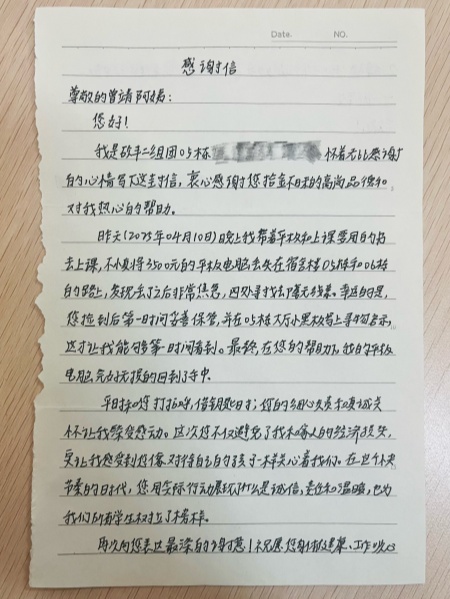 Date.    NO.
感谢信
尊敬的曾靖阿姨：
您好！
我是砍半二组团05栋 怀着无比感谢
的心情写下这封信，衷心感谢您拾金不昧的高尚品德和
对我热心的帮助。
昨天（2025年04月10日）晚上我带着平板和上课要用的书
去上课，不小心将3500元的平板电脑丢失在宿舍楼05栋和06栋
的路上，发现丢了之后非常焦急，四处寻找去了毫无线索。幸运的是，
您捡到后第一时间妥善保管，并在05栋大厅小黑板写上寻物启示，
这才让我能够第一时间看到。最终，在您的帮助下，我的平板
电脑完好无损的回到了手中。
平日和您打招呼，借钥匙时；您的细心负责和真诚关
怀让我深受感动。这次您不仅避免了我和家人的经济损失，
更让我感受到您像对待自己的孩子一样关心着我们。在这个快
节奏的日时代，您用实际行动展现了什么是诚信、责任和温暖，也为
我们所有学生树立了榜样。
再次向您表达最深的谢意！祝愿您身体健康、工作顺心